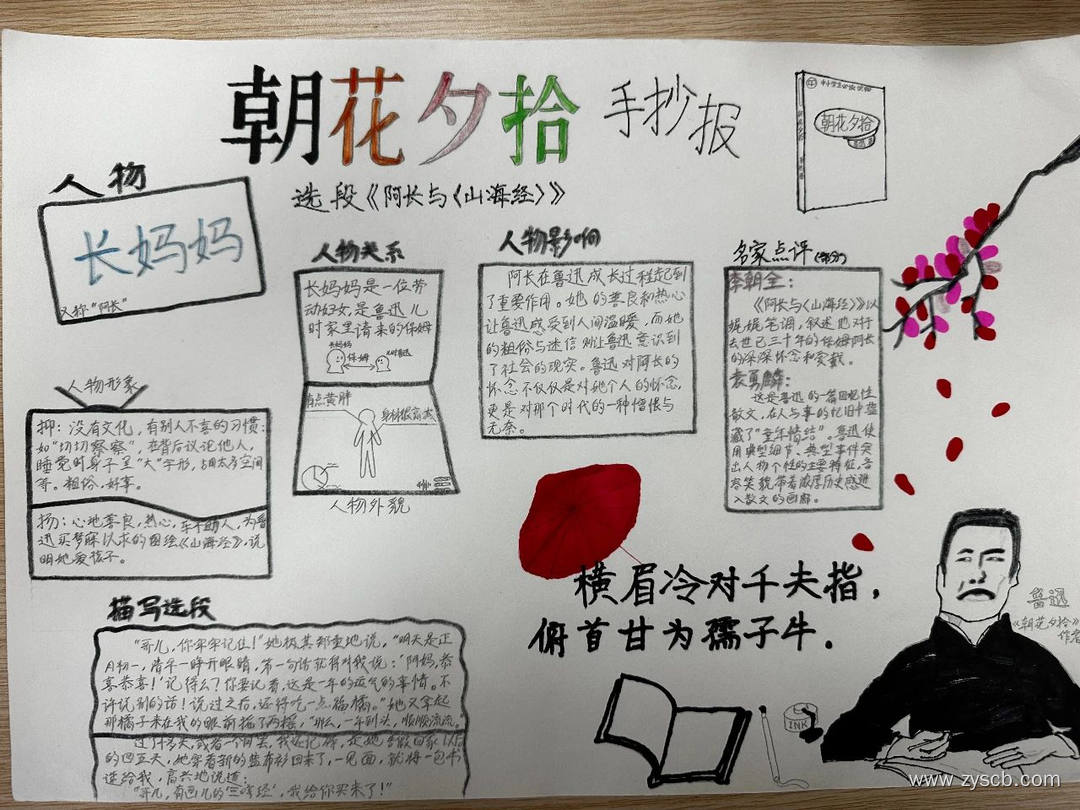 朝花夕拾 手抄报
选段《阿长与〈山海经〉》
朝花夕拾
人物
长妈妈
又称“阿长”
人物关系
长妈妈是一位劳
动妇女,是鲁迅儿
时家里请来的保姆
长妈妈
保姆
人物影响
阿长在鲁迅成长过程起到
了重要作用。她的善良和热心
让鲁迅感受到人间温暖,而她
的粗俗与迷信则让鲁迅意识到
了社会的现实。鲁迅对阿长的
怀念不仅仅是对她个人的怀念,
更是对那个时代的一种憎恨与
无奈。
名家点评(部分)
李朝全:
《阿长与〈山海经〉》以
娓娓笔调,叙述他对于
去世已三十年的保姆阿长
的深深怀念和爱戴。
袁勇麟:
这是鲁迅的一篇回忆性
散文,在人与事的忆旧中蕴
藏了“童年情结”。鲁迅使
用典型细节、典型事件突
出人物个性的主要特征,音
容笑貌带着浓厚历史感进
入散文的画廊。
人物形象
抑:没有文化,有别人不喜的习惯:
如“切切察察”,在背后议论他人,
睡觉时身子呈“大”字形,占用太多空间
等。粗俗、好事。
扬:心地善良,热心,乐于助人,为鲁
迅买梦寐以求的图绘《山海经》,说
明她爱孩子。
有点黄胖
身材很高大
人物外貌
横眉冷对千夫指,
俯首甘为孺子牛.
描写选段
“哥儿,你牢牢记住!”她极其郑重地说,“明天是正
月初一,清早一睁开眼睛,第一句话就得对我说:‘阿妈,恭
喜恭喜!’记得么?你要记着,这是一年的运气的事情。不
许说别的话!说过之后,还得吃一点福橘。”她又拿起
那橘子来在我的眼前摇了两摇,“那么,一年到头,顺顺流流。”
过了多天,或者一个月罢,我还记得,是她告假回家以后
的四五天,她穿着新的蓝布衫回来了,一见面,就将一包书
递给我,高兴地说道:
“哥儿,有画儿的‘三哼经’,我给你买来了!”
INK
鲁迅
《朝花夕拾》
作者
www.zyscb.com